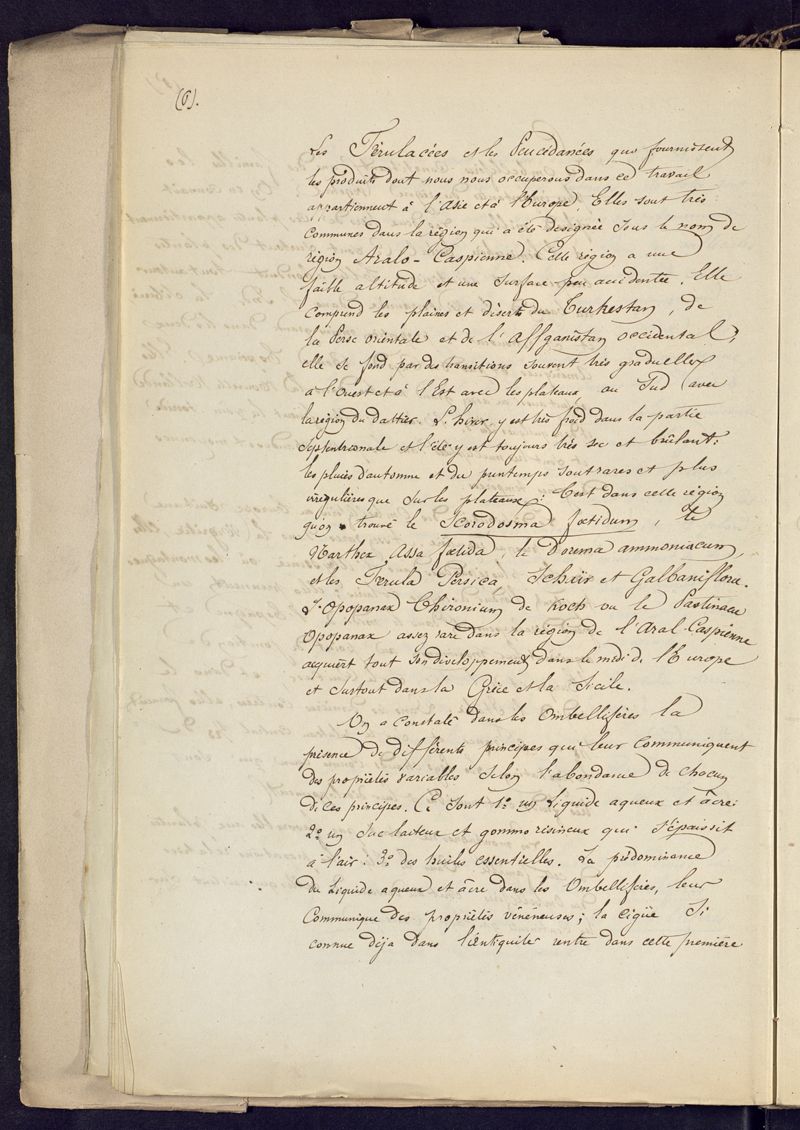 (6).
Les Férulacées et les Peucédanées qui fournissent
les produits dont nous nous occuperons dans ce travail
appartiennent à l'Asie et à l'Europe. Elles sont très
communes dans la région qui a été designée sous le nom de
région Aralo-Caspienne. Cette région a une
faible altitude et une surface peu accidentée. Elle
comprend les plaines et déserts du Turkestan, de
la Perse orientale et de l'Affganistan occidental;
elle se fond par des transitions souvent très graduelles
à l'Ouest et à l'Est avec les plateaux, au Sud avec
la région du dattier. L'hiver y est très froid dans la partie
septentrionale et l'été y est toujours très sec et brûlant:
les pluies d'automne et du printemps sont rares et plus
irrégulières que sur les plateaux: C'est dans cette région
qu'on trouve le Scorodosma fœtidum, le
Narthex Assa fœtida, le Dorema ammoniacum,
et les Ferula Persica, Schaïr et Galbaniflora.
L'Opopanax Chironium de Koch ou le Pastinaca
Opopanax assez rare dans la région de l'Aral-Caspienne
acquiert tout son développement dans le midi de l'Europe
et surtout dans la Grèce et la Sicile.
On a constaté dans les Ombellifères la
présence de différents principes qui leur communiquent
des propriétés variables selon l'abondance de chacun
de ces principes. Ce sont 1.º un liquide aqueux et âcre:
2.º un suc lacteux et gommo résineux qui s'épaissit
à l'air: 3.º des huiles essentielles. La prédominance
du liquide aqueux et âcre dans les Ombellifères, leur
communique des propriétés vénéneuses; la cigüe si
connue déja dans l'antiquité rentre dans cette première